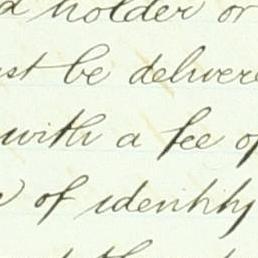 d holder or
ust be delivere
with a fee of
of identity